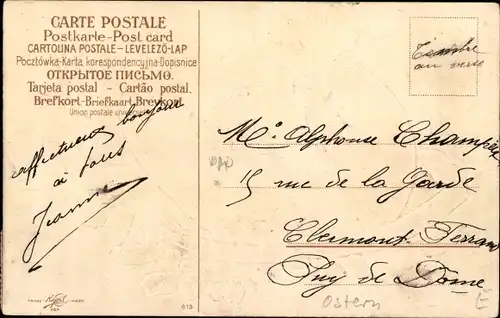 CARTE POSTALE
Postkarte-Post card
CARTOLINA POSTALE-LEVELEZÖ-LAP
Pocztówka-Karta korespondencyjna-Dopisnice
ОТКРЫТОЕ ПИСЬМО.
Tarjeta postal - Cartão postal.
Brefkort-Briefkaart-Brevkort
Union postale universelle
Timbre
au verso
affectueux bonjour
à tous
Jeanne
Mr Alphonse
15 rue de la Garde
Clermont-Ferrand
Puy de Dôme
Ostern
E
613